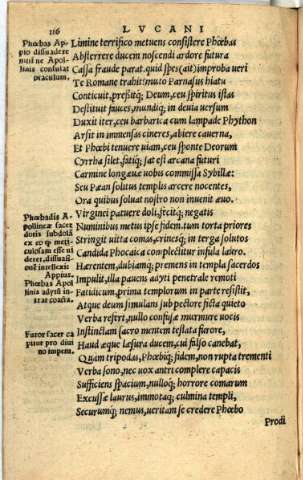 116 LVCANI
Phœbas Ap
pio dissuadere
nititur ne Apol
linis consulat
oraculum.
Limine terrifico metuens consistere Phœbas
Absterrere ducem noscendi ardore futura
Cassa fraude parat. quid spes (ait) improba ueri
Te Romane trahit? muto Parnasus hiatu
Conticuit, pressitq; Deum, ceu spiritus istas
Destituit fauces, mundiq; in deuia uersum
Duxit iter, ceu barbarica cum lampade Phython
Arsit in immensas cineres, abiere cauerna,
Et Phœbi tenuere uiam, seu sponte Deorum
Cyrrha silet, satiq; sat est arcana futuri
Carmine longæuæ uobis commissa Sybillæ:
Seu Pæan solitus templis arcere nocentes,
Ora quibus soluat nostro non inuenit æuo.
Phœbadis A
pollineæ facet
dotis subdolā
ex eo q meti
culosam esse ui
deret, dissuasi
onē intellexit
Appius.
Phœbas Apol
linia adyta in
trat coacta.
Virginei patuere doli, fecitq; negatis
Numinibus metus ipse fidem. tum torta priores
Stringit uitta comas, crinesq; in terga solutos
Candida Phocaica complectitur infula lauro.
Hærentem, dubiamq; premens in templa sacerdos
Impulit, illa pauens adyti penetrale remoti
Fatidicum, prima templorum in parte resistit,
Atque deum simulans sub pectore ficta quieto
Verba refert, nullo confusæ murmure uocis
Furor sacer ca
pitur pro diui
no impetu.
Instinctam sacro mentem testata furore,
Haud æque læsura ducem, cui falso canebat,
Quam tripodas, Phœbiq; fidem, non rupta trementi
Verba sono, nec uox antri complere capacis
Sufficiens spacium, nulloq; horrore comarum
Excussæ laurus, immotaq; culmina templi,
Securumq; nemus, ueritam se credere Phœbo
Prodi